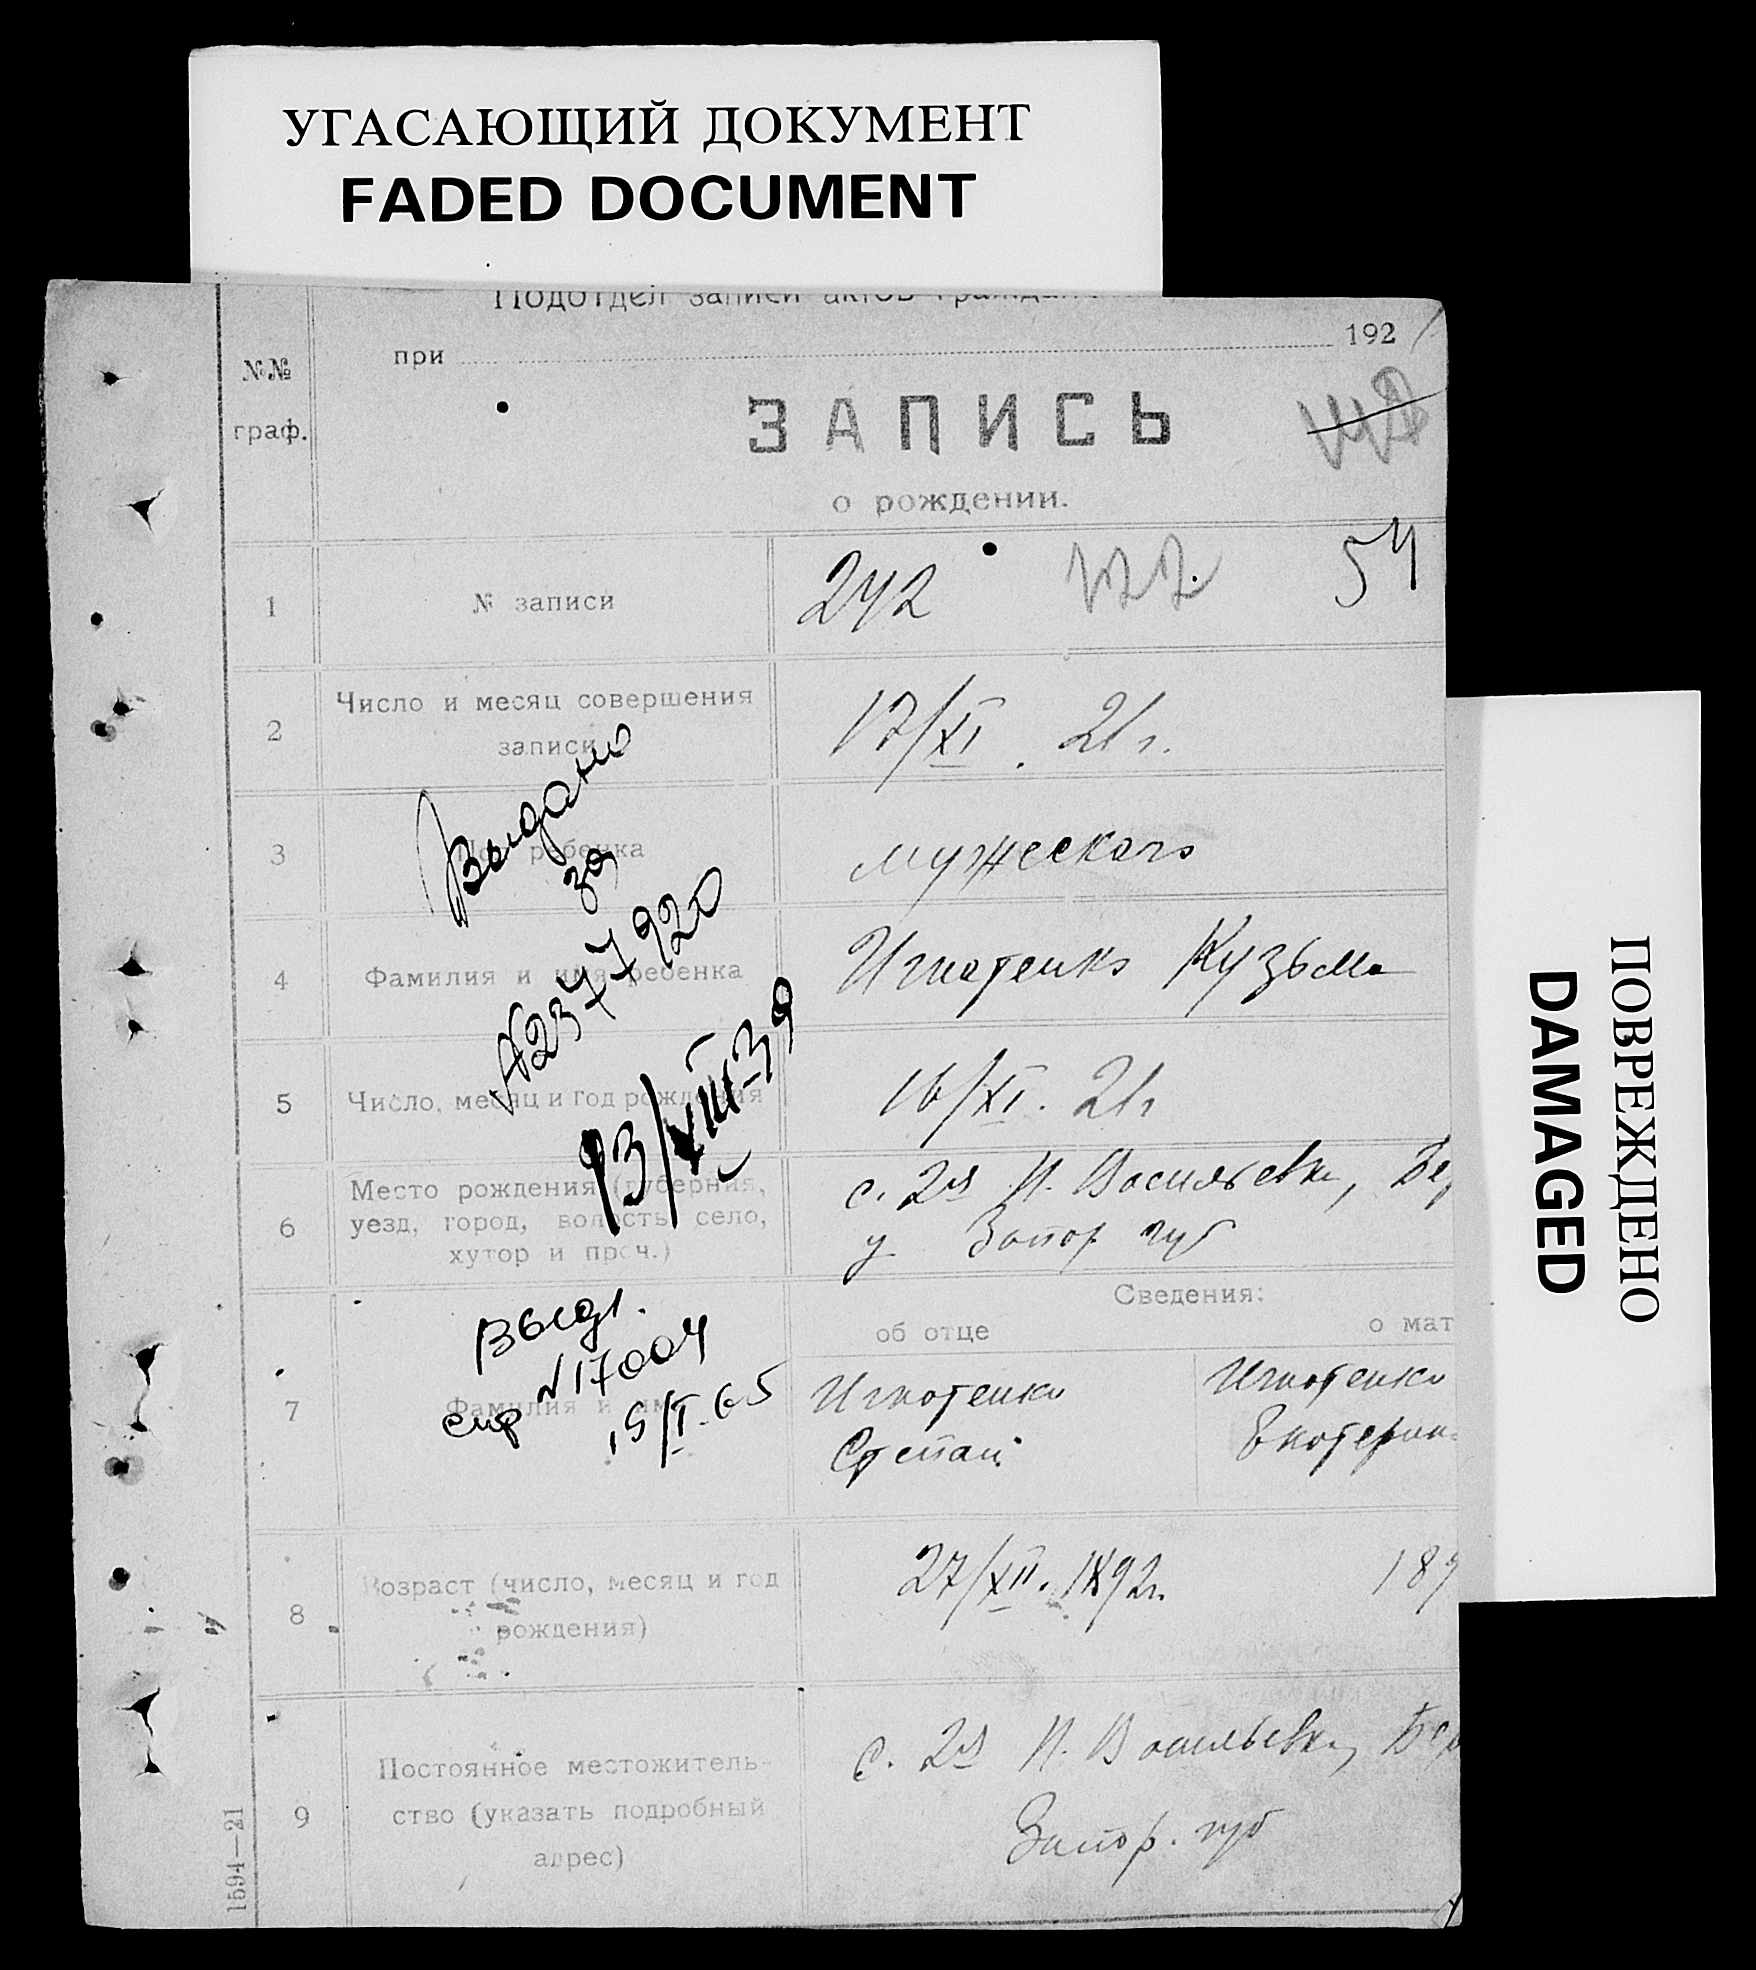 УГАСАЮЩИЙ ДОКУМЕНТ
FADED DOCUMENT
Подотдел записи актов граждан
при 192 1
№№
граф.
ЗАПИСЬ
о рождении.
1 № записи 242 122. 54
2 Число и месяц совершения
записи 17/XI. 21 г.
3 ребенка мужеского
4 Фамилия и имя ребенка Игнатенко Кузьма
5 Число, месяц и год рождения 16/XI. 21 г
6 Место рождения (губерния,
уезд, город, волость, село,
хутор и проч.)
с. 2я Н. Васильевка, Бер
у Запор губ
Выдано
за
№2377920
13/VIII-39
Сведения:
об отце о мат
7 Фамилия и имя
Игнатенко
Степан
Игнатенко
Екатерин
Выд.
спр №17004
15/I-65
8 Возраст (число, месяц и год
рождения)
27/XII. 1892г. 189
9 Постоянное местожитель-
ство (указать подробный
адрес)
с. 2я Н. Васильевка, Бер
Запор. губ
1594—21
ПОВРЕЖДЕНО
DAMAGED